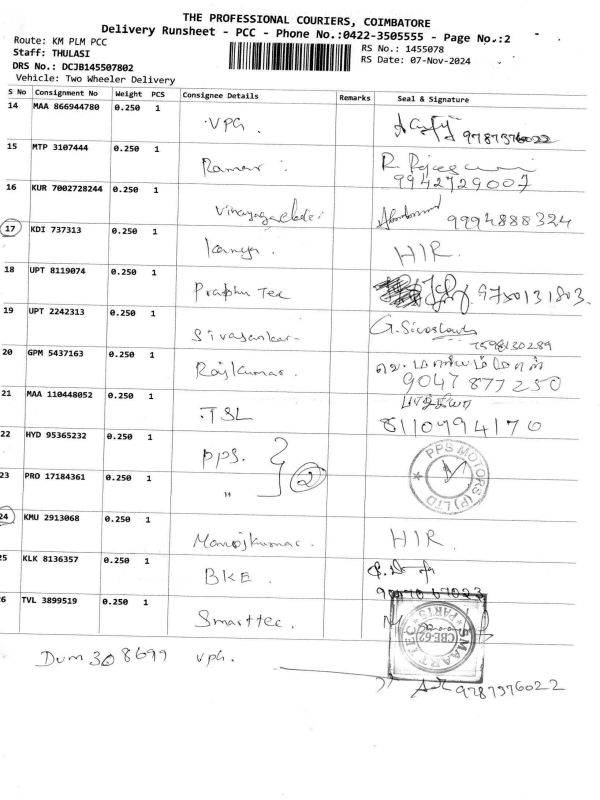 THE PROFESSIONAL COURIERS, COIMBATORE
Delivery Runsheet - PCC - Phone No.:0422-3505555 - Page No.:2
Route: KM PLM PCC
RS No.: 1455078
Staff: THULASI
RS Date: 07-Nov-2024
DRS No.: DCJB145507802
Vehicle: Two Wheeler Delivery
S No Consignment No Weight PCS Consignee Details Remarks Seal & Signature
14 MAA 866944780 0.250 1 VPG. 9787376022
15 MTP 3107444 0.250 1 9942729007
16 KUR 7002728244 0.250 1 9994888324
17 KDI 737313 0.250 1 HIR.
18 UPT 8119074 0.250 1 Prabhu Tex 9750131803.
19 UPT 2242313 0.250 1 Sivasankar. 7598130289
20 GPM 5437163 0.250 1 Rajkumar. 9047877250
21 MAA 110448052 0.250 1 TSL 8110994170
22 HYD 95365232 0.250 1 PPS. PPS MOTORS (P) LTD
23 PRO 17184361 0.250 1 " 2
24 KMU 2913068 0.250 1 Manojkumar. HIR.
25 KLK 8136357 0.250 1 BKE.
26 TVL 3899519 0.250 1 Smarttec. SMAART TEC PARTS CBE-62
Dum 308699 VPG. 9787376022